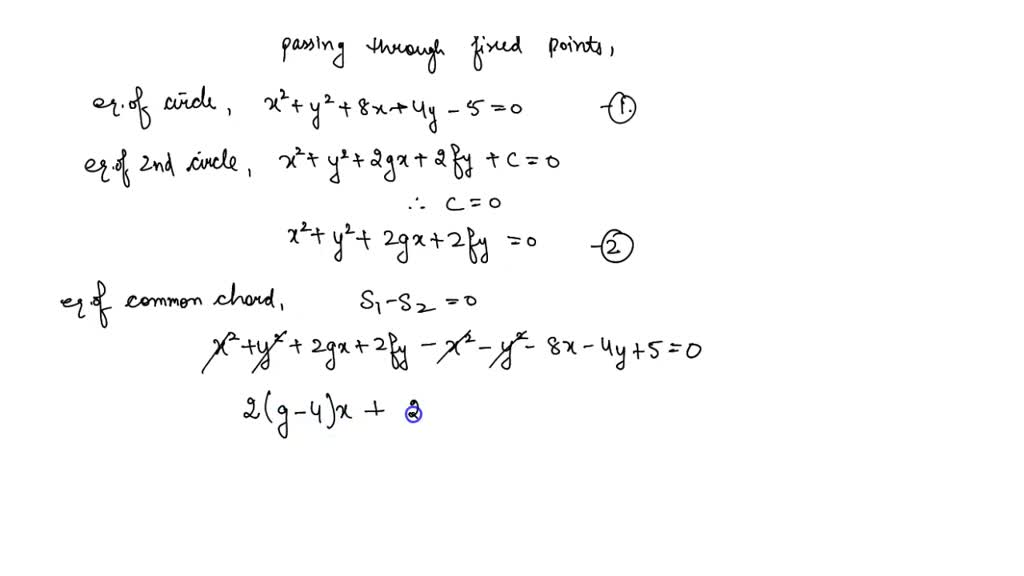 passing through fixed points,
eq. of circle, x² + y² + 8x + 4y - 5 = 0 -①.
eq. of 2nd circle, x² + y² + 2gx + 2fy + C = 0
∴ C = 0
x² + y² + 2gx + 2fy = 0 -②
eq. of common chord, S₁ - S₂ = 0
x² + y² + 2gx + 2fy - x² - y² - 8x - 4y + 5 = 0
2(g-4)x + 2